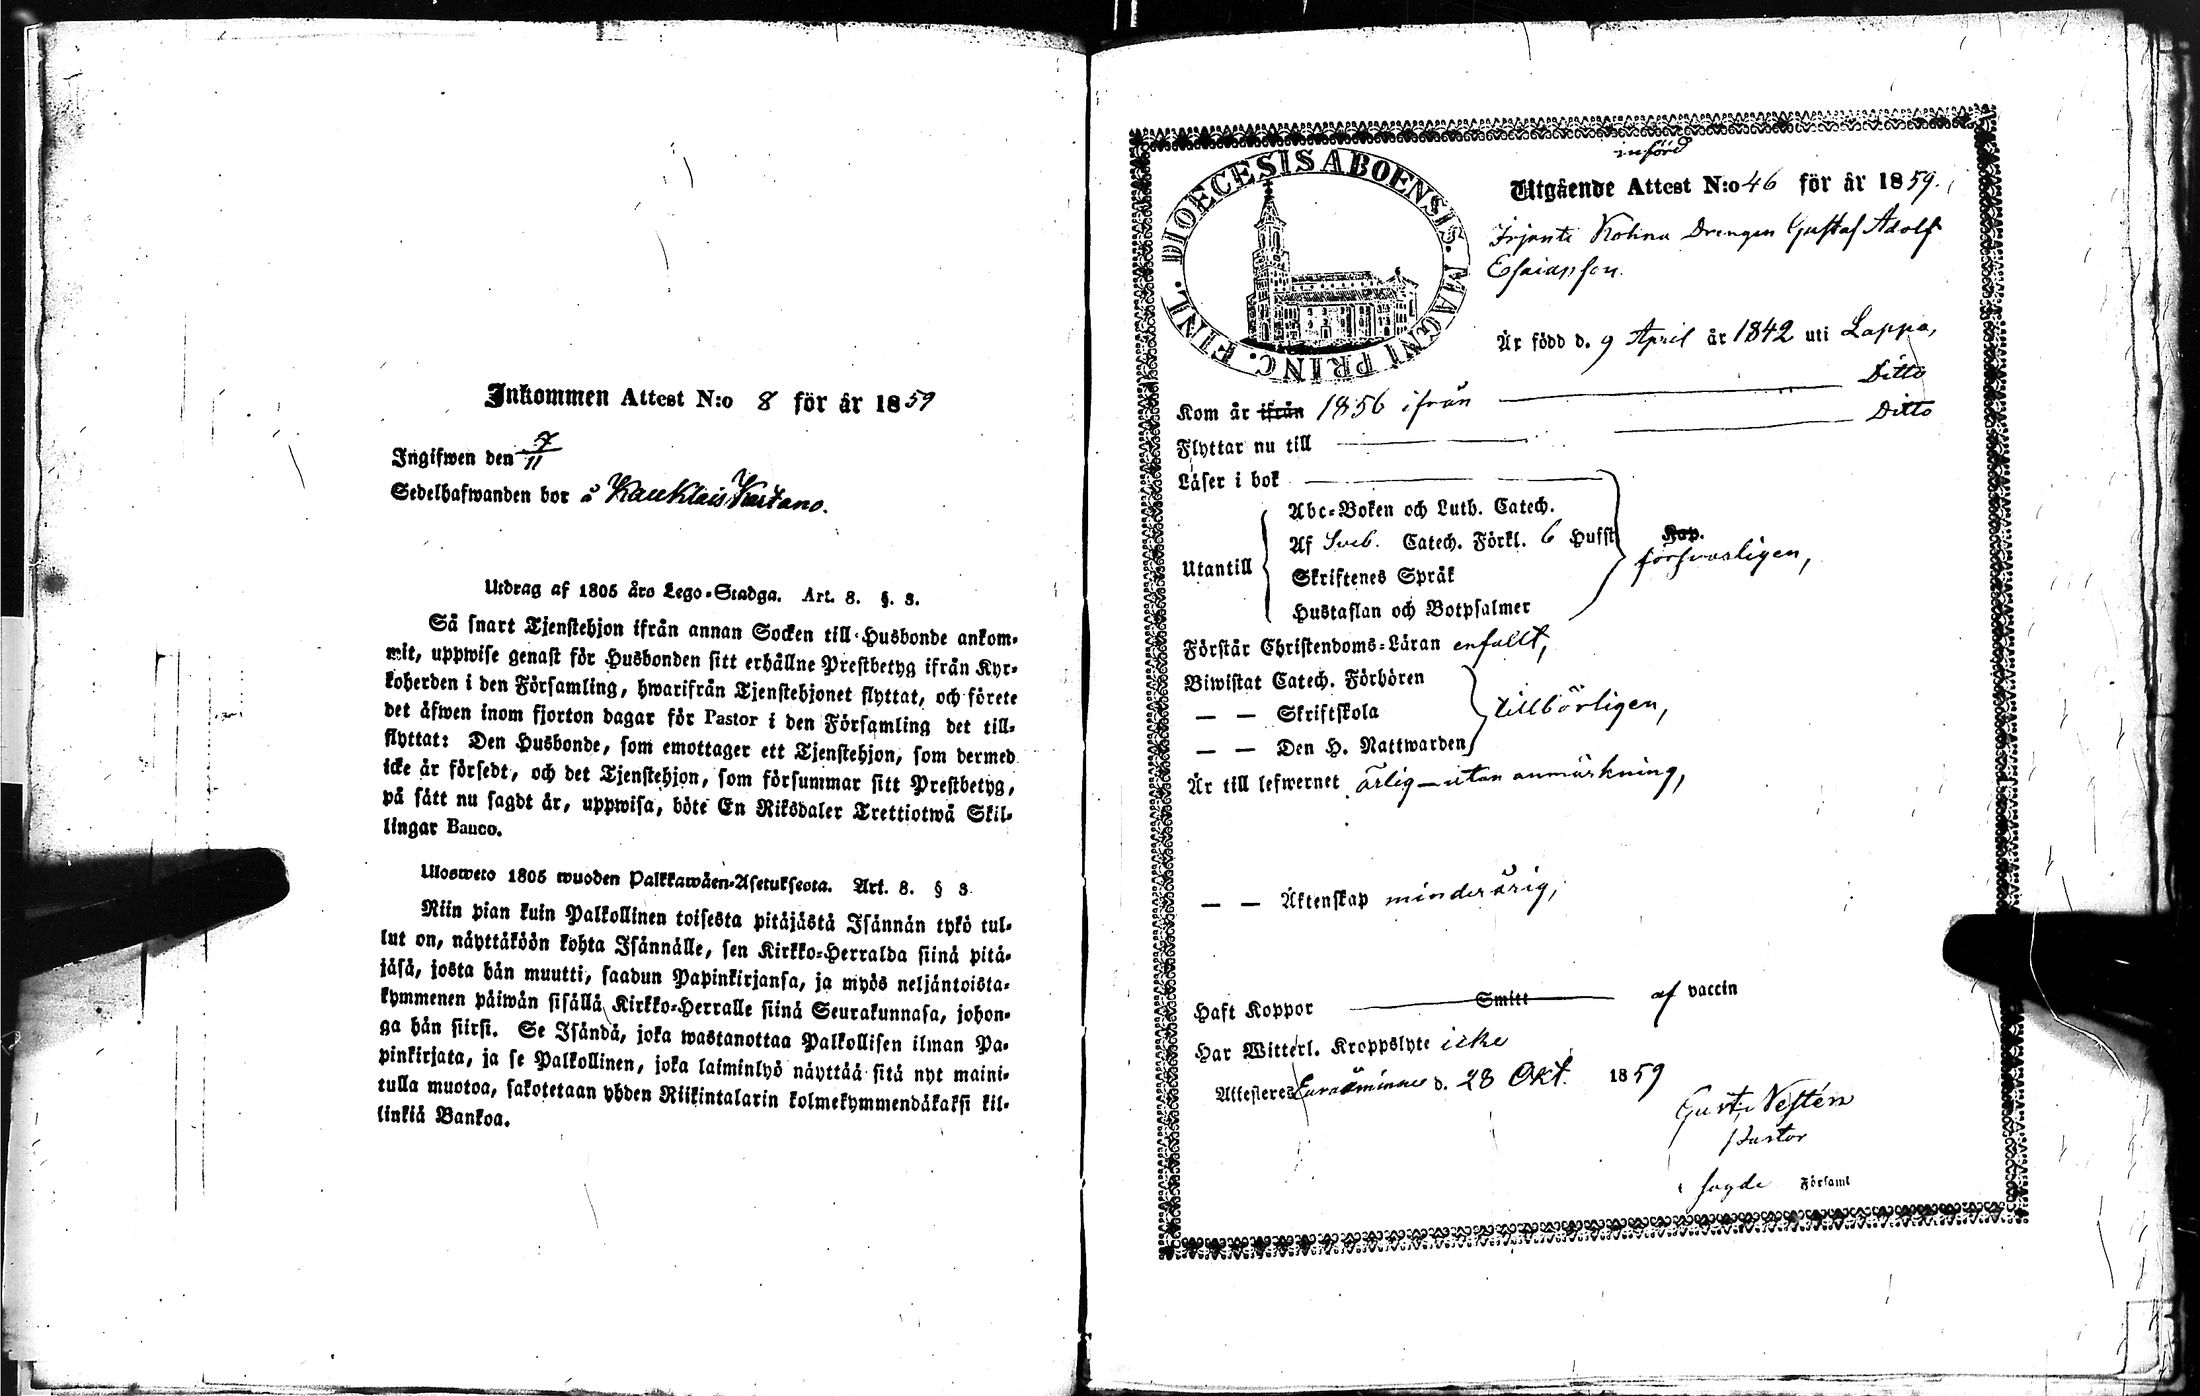 Inkommen Attest N:o 8 för år 1859
Ingifwen den 7/11
Sedelhafwanden bor å Kauklais Kartano.
Utdrag af 1805 års Lego-Stadga. Art. 8. §. 3.
Så snart Tjenstehjon ifrån annan Socken till Husbonde ankom-
mit, uppwise genast för Husbonden sitt erhållne Prestbetyg ifrån Kyr-
koherden i den Församling, hwarifrån Tjenstehjonet flyttat, och förete
det äfwen inom fjorton dagar för Pastor i den Församling det till-
flyttat: Den Husbonde, som emottager ett Tjenstehjon, som dermed
icke är försedt, och det Tjenstehjon, som försummar sitt Prestbetyg,
på sätt nu sagdt är, uppwisa, böte En Riksdaler Trettiotwå Skil-
lingar Banco.
Ulosweto 1805 wuoden Palkkawäen-Asetuksesta. Art. 8. § 3
Niin pian kuin Palkollinen toisesta pitäjästä Isännän tykö tul-
lut on, näyttäköön kohta Isännälle, sen Kirkko-Herralda siinä pitä-
jäsä, josta hän muutti, saadun Papinkirjansa, ja myös neljäntoista-
kymmenen päiwän sisällä Kirkko-Herralle siinä Seurakunnasa, johon-
ga hän siirsi. Se Isändä, joka wastanottaa Palkollisen ilman Pa-
pinkirjata, ja se Palkollinen, joka laiminlyö näyttää sitä nyt maini-
tulla muotoa, sakotetaan yhden Riikintalarin kolmekymmendäkaksi kil-
linkiä Bankoa.
DIOECESIS ABOENSIS. MAGNI PRINC. FINL.
införd
Utgående Attest N:o 46 för år 1859.
Irjante Kohna Drengen Gustaf Adolf
Esaiasson.
Är född d. 9 April år 1842 uti Lappo,
Kom år ifrån 1856 ifrån Ditto
Flyttar nu till Ditto
Läser i bok
Utantill
Abc-Boken och Luth. Catech.
Af Sveb. Catech. Förkl. 6 Hufst
Skriftenes Språk
Hustaflan och Botpsalmer
Kap.
försvarligen,
Förstår Christendoms-Läran enfaldt,
Biwistat Catech. Förhören
— — Skriftskola
— — Den H. Nattwarden
tillbörligen,
Är till lefwernet ärlig — utan anmärkning,
— — Äktenskap minderårig,
Haft Koppor Smitt af vaccin
Har Witterl. Kroppslyte icke
Attesteres Euraåminne d. 28 Okt. 1859
Gust. Nestén
Pastor
i sagde Församl